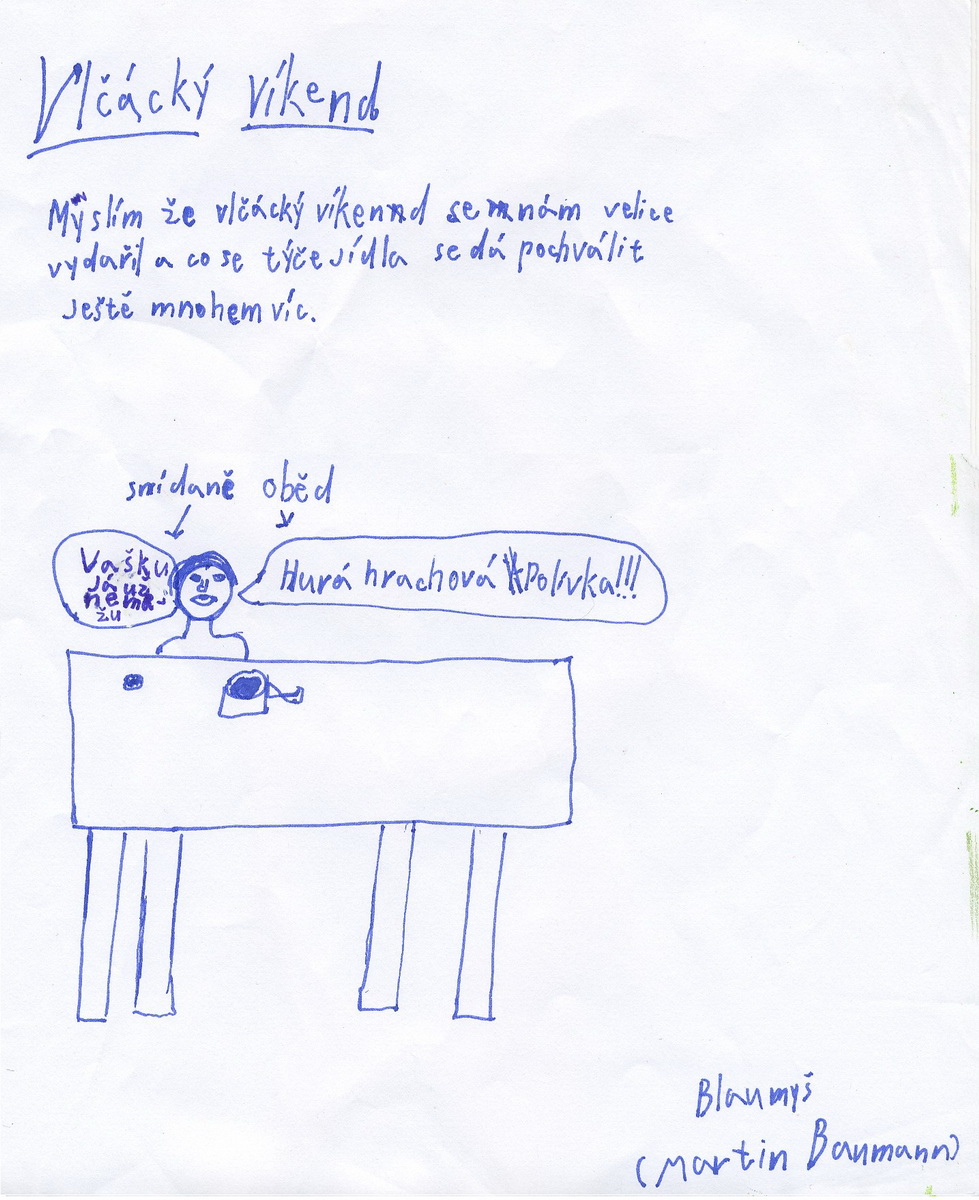 Vlčácký víkend
Myslím že vlčácký víkennd se nám velice
vydařil a co se týče jídla se dá pochválit
Ještě mnohem víc.
smídaně oběd
Vašku
já uz
nemů-
žu
Hurá hrachová Polívka!!!
Blaumyš
(Martin Baumann)